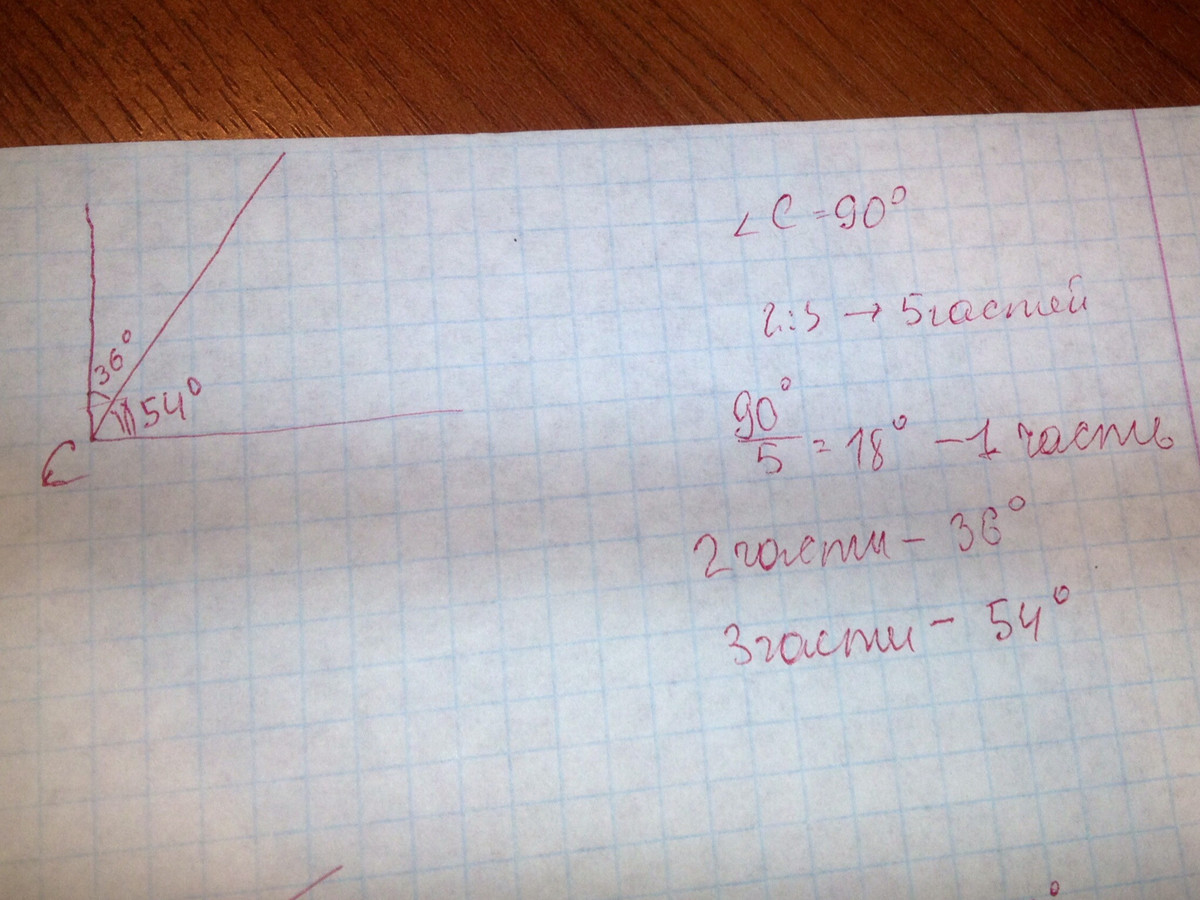 36°
54°
C
∠C=90°
2:3 → 5 частей
90°/5 = 18° – 1 часть
2 части – 36°
3 части – 54°